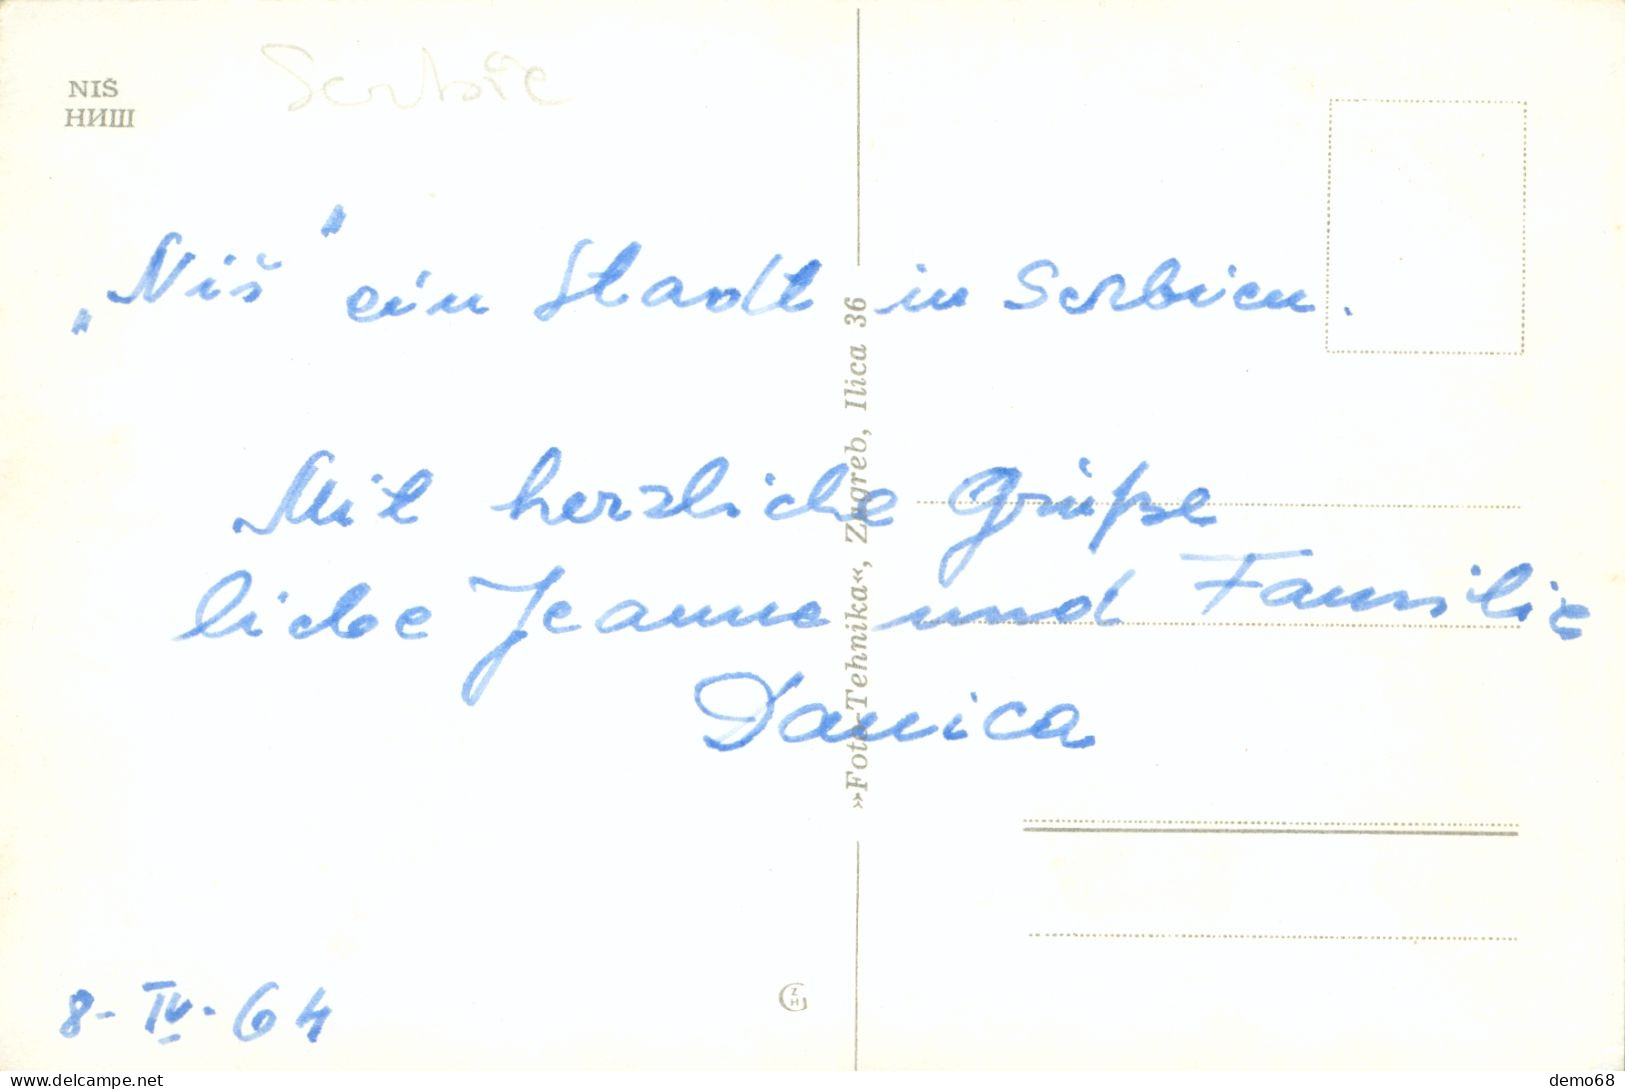 NIŠ
НИШ
Serbie
„Niš" ein Stadt in Serbien.
Mit herzliche Grüße
liebe Jeanne und Familie
Danica
8-IV-64
»Foto-Tehnika«, Zagreb, Ilica 36
ZH
delcampe.net
demo68